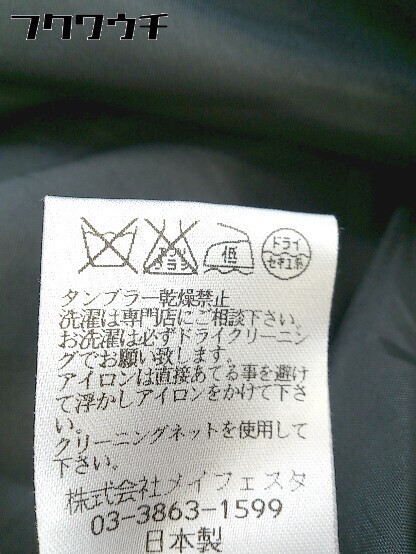 フクワウチ
エンソ
サラシ
低
ドライ
セキユ系
タンブラー乾燥禁止
洗濯は専門店にご相談下さい。
お洗濯は必ずドライクリーニン
グでお願い致します。
アイロンは直接あてる事を避け
て浮かしアイロンをかけて下さ
い。
クリーニングネットを使用して
下さい。
株式会社メイフェスタ
03-3863-1599
日本製